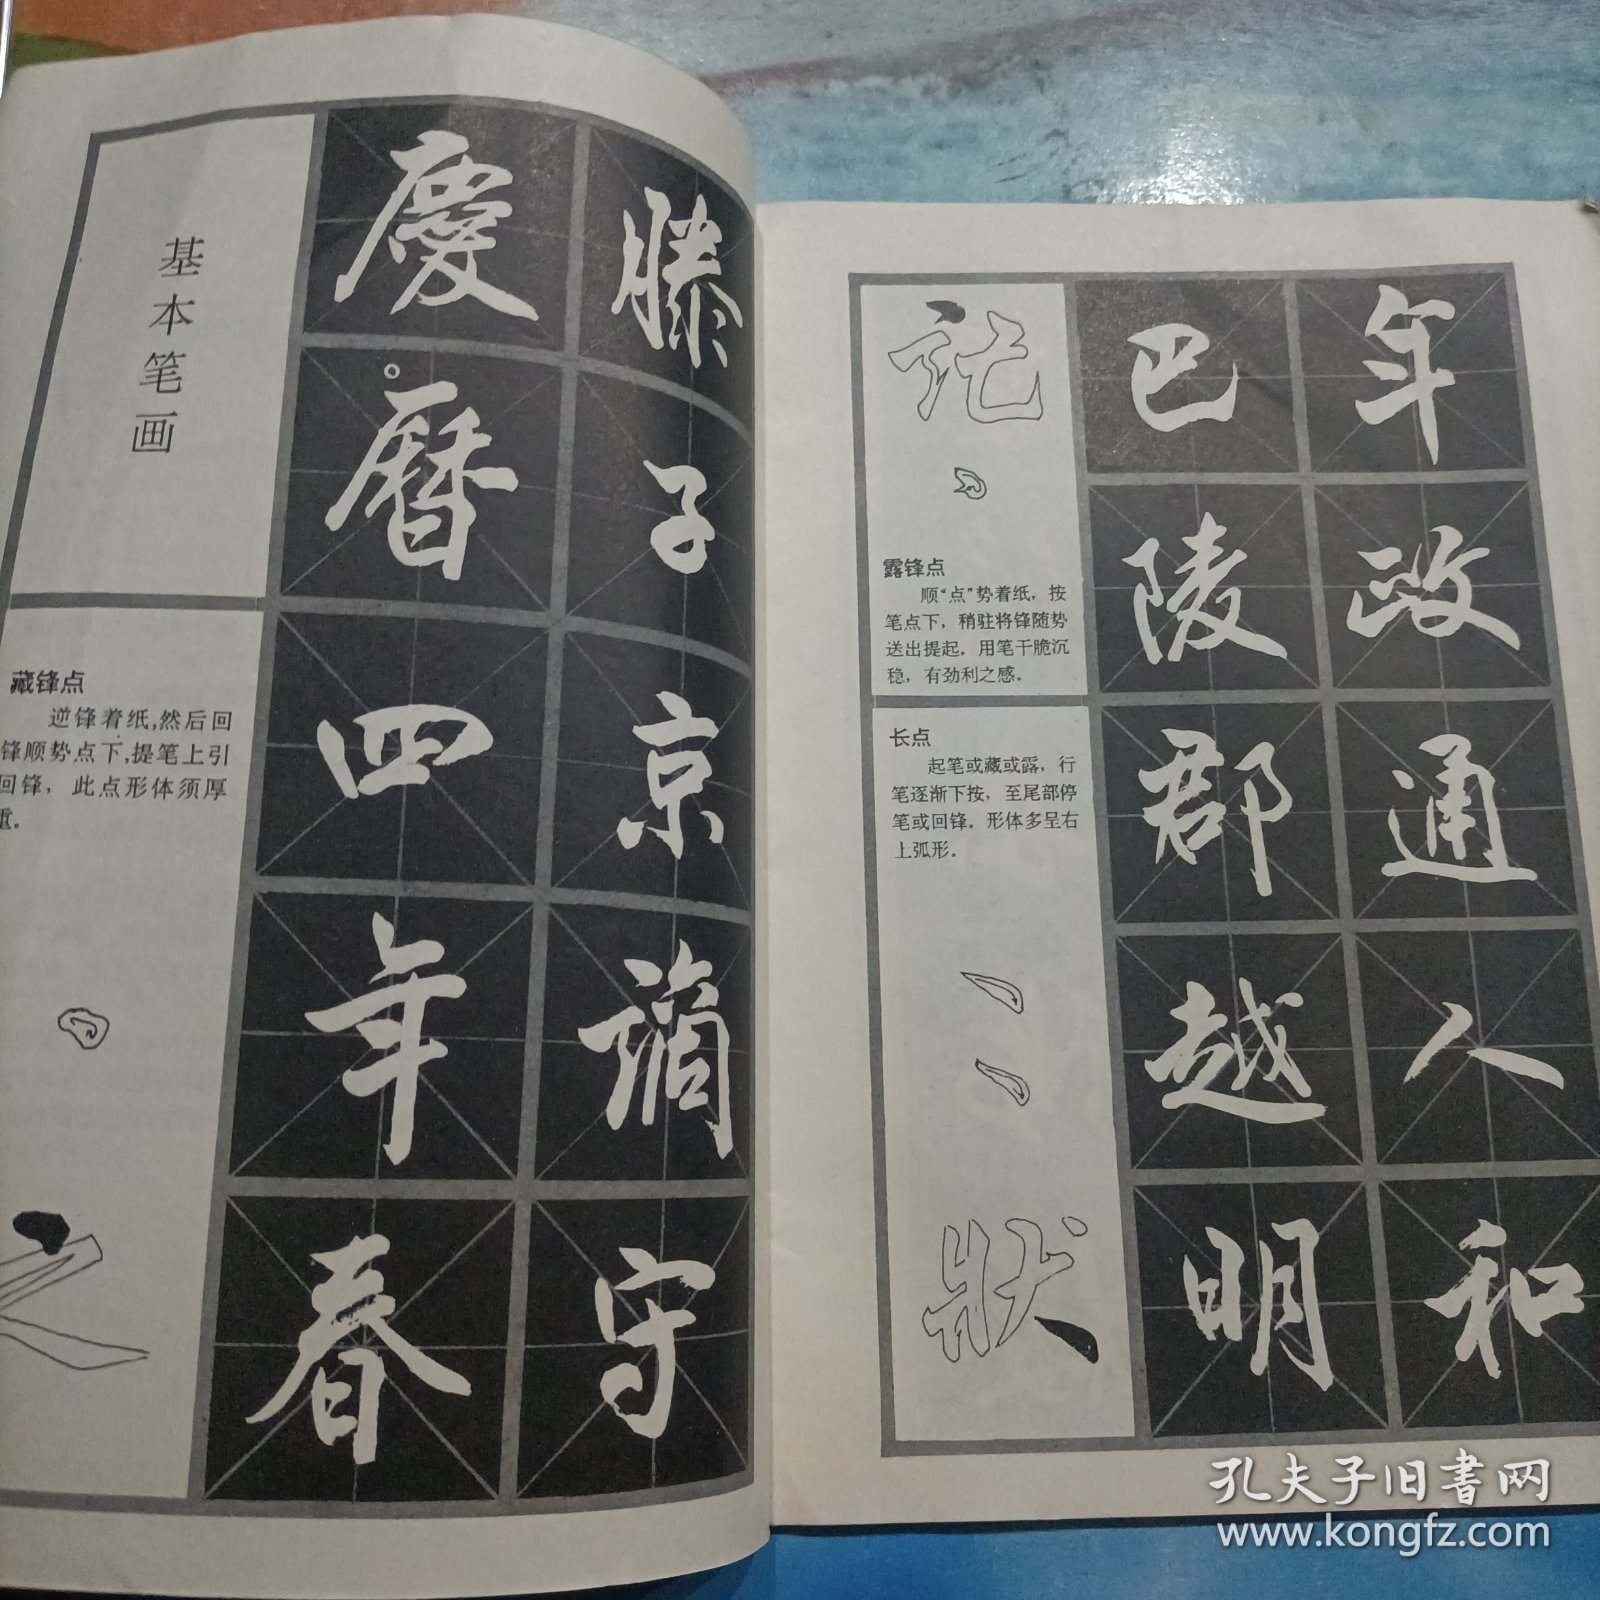 基本笔画
藏锋点
逆锋着纸,然后回
锋顺势点下,提笔上引
回锋，此点形体须厚
重。
之
慶曆四年春
滕子京謫守
記
露锋点
顺“点”势着纸，按
笔点下，稍驻将锋随势
送出提起。用笔干脆沉
稳，有劲利之感。
长点
起笔或藏或露，行
笔逐渐下按，至尾部停
笔或回锋。形体多呈右
上弧形。
狀
巴陵郡越明
年政通人和
孔夫子旧书网
www.kongfz.com